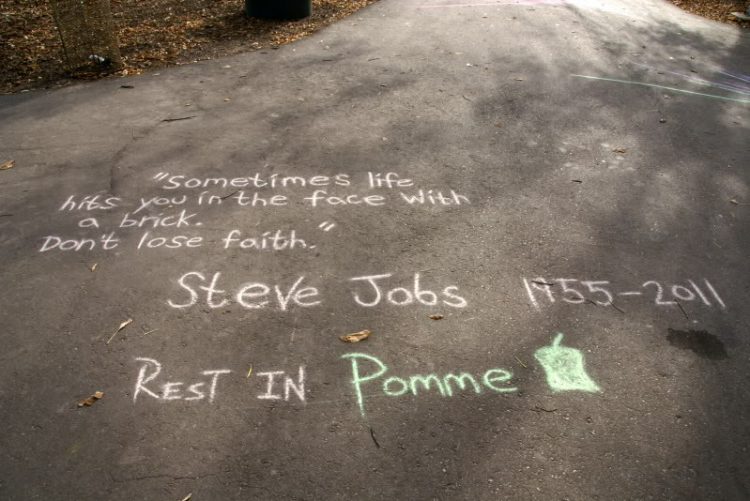 "Sometimes life
hits you in the face with
a brick.
Don't lose faith."
Steve Jobs 1955-2011
REST IN Pomme